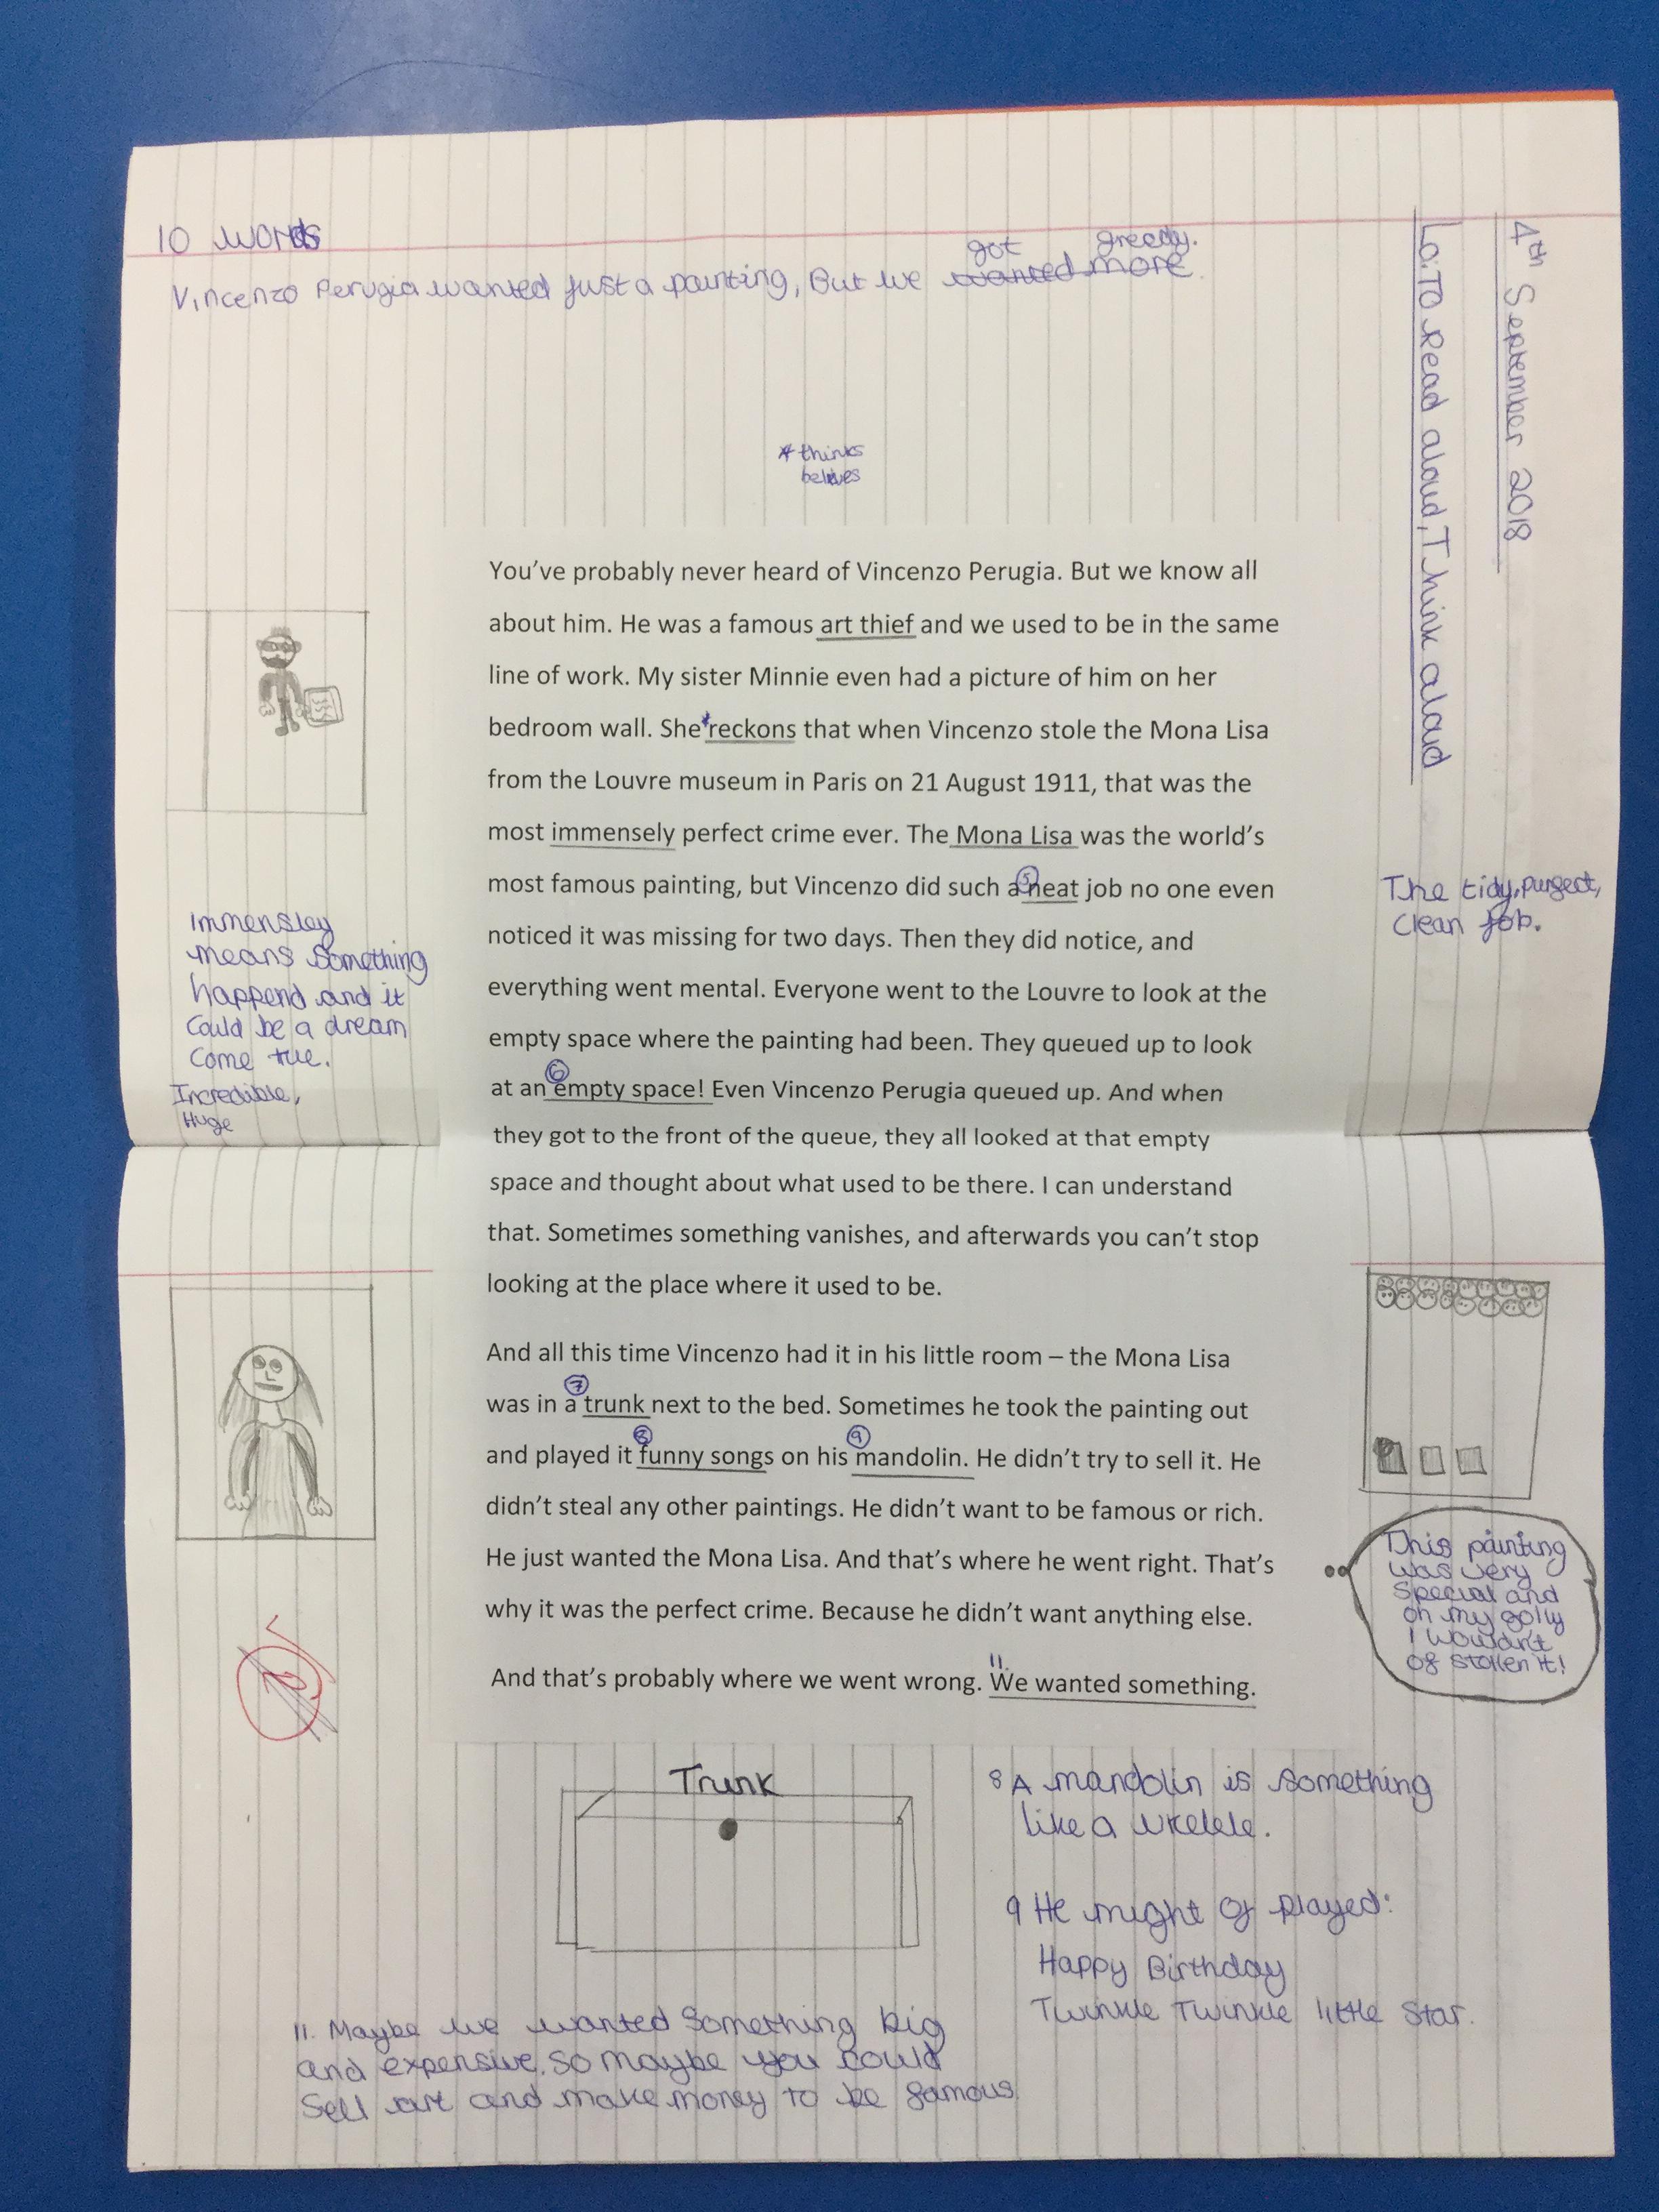 4th September 2018
Lo: To Read aloud, Think aloud
10 words
got greedy.
Vincenzo Perugia wanted just a painting, But we wanted more.
* thinks
belives
You've probably never heard of Vincenzo Perugia. But we know all
about him. He was a famous art thief and we used to be in the same
line of work. My sister Minnie even had a picture of him on her
bedroom wall. She *reckons that when Vincenzo stole the Mona Lisa
from the Louvre museum in Paris on 21 August 1911, that was the
most immensely perfect crime ever. The Mona Lisa was the world's
most famous painting, but Vincenzo did such a 5 neat job no one even
noticed it was missing for two days. Then they did notice, and
everything went mental. Everyone went to the Louvre to look at the
empty space where the painting had been. They queued up to look
at an 6 empty space! Even Vincenzo Perugia queued up. And when
they got to the front of the queue, they all looked at that empty
space and thought about what used to be there. I can understand
that. Sometimes something vanishes, and afterwards you can't stop
looking at the place where it used to be.
And all this time Vincenzo had it in his little room – the Mona Lisa
was in a 7 trunk next to the bed. Sometimes he took the painting out
and played it 8 funny songs on his 9 mandolin. He didn't try to sell it. He
didn't steal any other paintings. He didn't want to be famous or rich.
He just wanted the Mona Lisa. And that's where he went right. That's
why it was the perfect crime. Because he didn't want anything else.
And that's probably where we went wrong. 11. We wanted something.
Immensley
means something
happend and it
could be a dream
come true.
Incredible,
Huge
The tidy, purfect,
clean job.
This painting
was very
special and
oh my golly
I wouldn't
of stollen it!
Trunk
8 A mandolin is something
like a ukelele.
9 He might of played:
Happy Birthday
Twinkle Twinkle little star.
11. Maybe we wanted something big
and expensive. so maybe you could
sell art and make money to be famous.